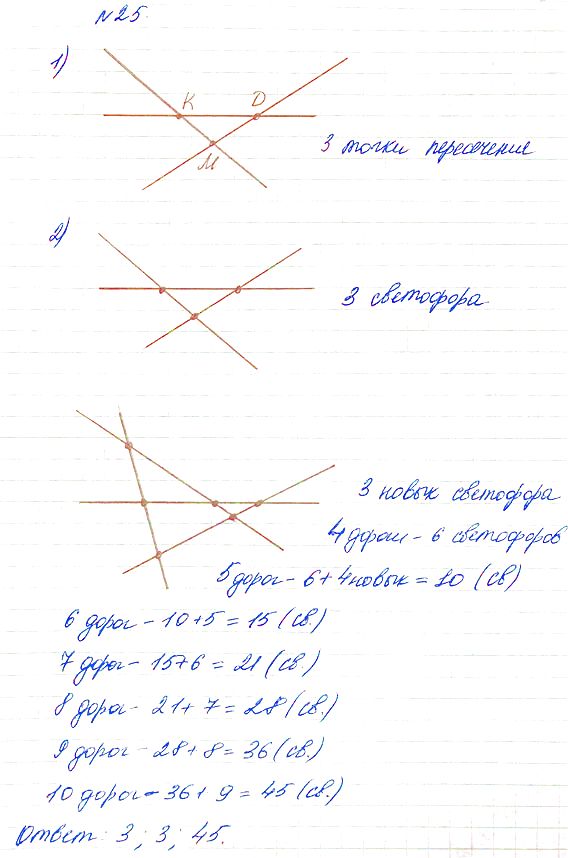 №25.
1)
К D
М
3 точки пересечения
2)
3 светофора
3 новых светофора
4 дороги - 6 светофоров
5 дорог - 6 + 4 новых = 10 (св)
6 дорог - 10 + 5 = 15 (св.)
7 дорог - 15 + 6 = 21 (св.)
8 дорог - 21 + 7 = 28 (св.)
9 дорог - 28 + 8 = 36 (св.)
10 дорог - 36 + 9 = 45 (св.)
Ответ: 3; 3; 45.